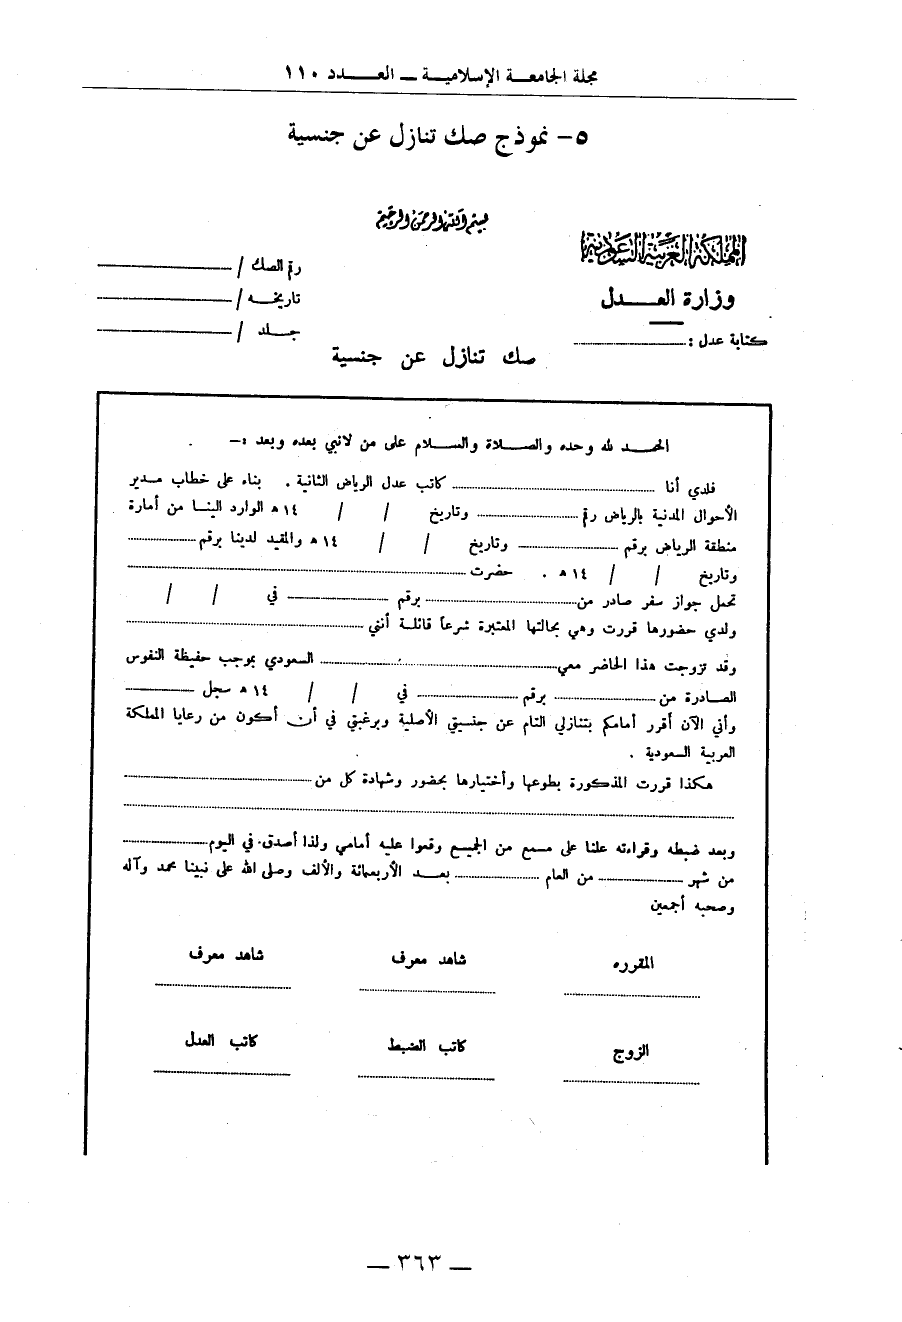 مجلة الجامعة الإسلامية – العدد ١١٠
٥- نموذج صك تنازل عن جنسية
بسم الله الرحمن الرحيم
المملكة العربية السعودية
وزارة العدل
كتابة عدل :
رقم الصك /
تاريخه /
جلد /
صك تنازل عن جنسية
الحمد لله وحده والصلاة والسلام على من لانبي بعده وبعد :-
فلدي أنا ........ كاتب عدل الرياض الثانية . بناء على خطاب مدير
الأحوال المدنية بالرياض رقم ........ وتاريخ / / ١٤ هـ الوارد الينا من أمارة
منطقة الرياض برقم ........ وتاريخ / / ١٤ هـ والمقيد لدينا برقم ........
وتاريخ / / ١٤ هـ . حضرت ........
تحمل جواز سفر صادر من ........ برقم ........ في / /
ولدي حضورها قررت وهي بحالتها المعتبرة شرعاً قائلة أنني ........
وقد تزوجت هذا الحاضر معي ........ السعودي بموجب حفيظة النفوس
الصادرة من ........ برقم ........ في / / ١٤ هـ سجل ........
وأني الآن أقرر أمامكم بتنازلي التام عن جنسيتي الأصلية وبرغبتي في أن أكون من رعايا المملكة
العربية السعودية .
هكذا قررت المذكورة بطوعها وأختيارها بحضور وشهادة كل من ........
........
وبعد ضبطه وقراءته علنا على مسمع من الجميع وقعوا عليه أمامي ولذا أصدق في اليوم ........
من شهر ........ من العام ........ بعد الأربعمائة والألف وصلى الله على نبينا محمد وآله
وصحبه أجمعين
المقرره شاهد معرف شاهد معرف
الزوج كاتب الضبط كاتب العدل
– ٣٦٣ –